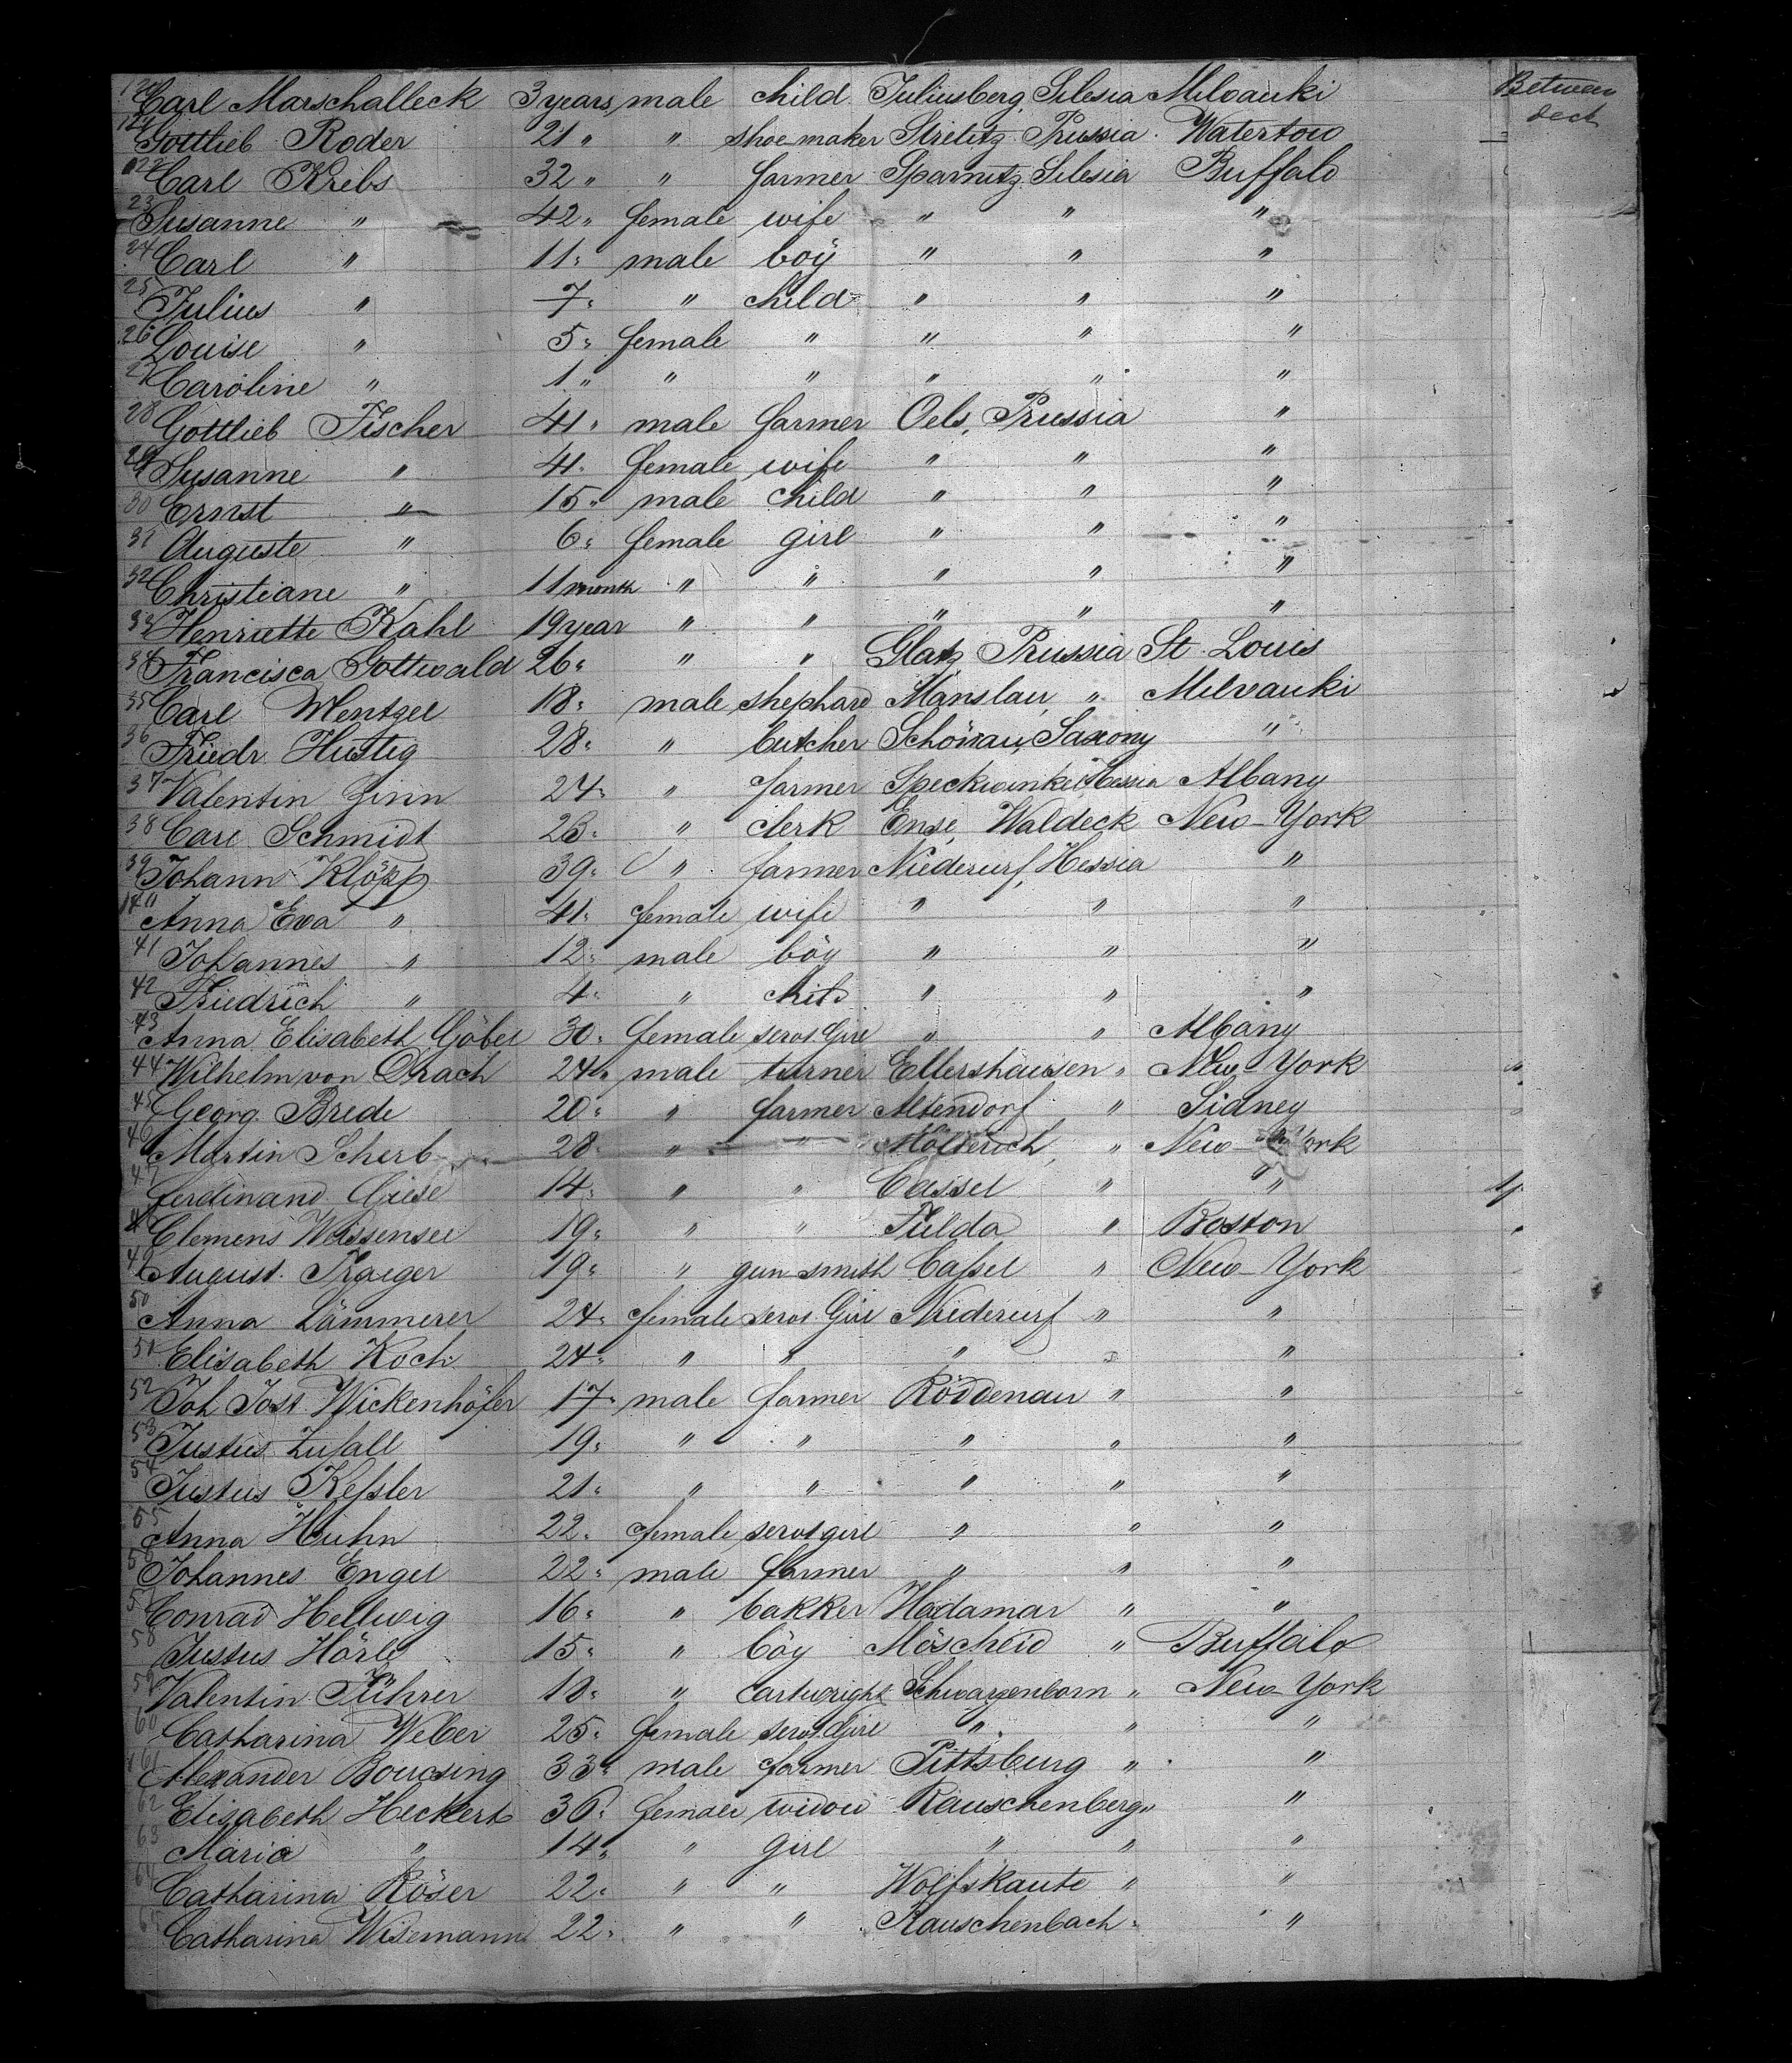 Between
deck
Carl Marschalleck 3 years, male child Juliusberg, Silesia Milvauki
Gottlieb Roder 21 " " shoe maker Strelitz Prussia Watertow
Carl Krebs 32 " " farmer Sparnitz Silesia Buffalo
23 Susanne " 42 " female wife " " "
24 Carl " 11 " male boÿ " " "
25 Julius " 7 " " child " " "
26 Louise " 5 " female " " " "
27 Caroline " 1 " " " " " "
28 Gottlieb Fischer 41 " male farmer Oels, Prussia "
29 Susanne " 41 " female wife " " "
30 Ernst " 15 " male child " " "
31 Auguste " 6 " female girl " " "
32 Christiane " 11 month " " " " "
33 Henriette Kahl 19 year " " " " "
34 Francisca Gottwald 26 " " " Glatz Prussia St. Louis
35 Carl Mentzel 18 " male shephard Manslau, " Milvauki
36 Friedr. Huttig 28 " " butcher Schönau, Saxony "
37 Valentin Zinn 24 " " farmer Speckwinkel Hessia Albany
38 Carl Schmidt 23 " " clerk Ense, Waldeck New-York
39 Johann Klöpp 39 " " farmer Niederurf, Hessia "
140 Anna Eva " 41 " female wife " " "
41 Johannes " 12 " male böy " " "
42 Friedrich " 4 " " child " " "
43 Anna Elisabeth Göbel 30 " female servt. Girl " " Albany
44 Wilhelm von Drach 24 " male turner Ellershausen " New-York
45 Georg Brede 20 " " farmer Altendorf " Sidney
46 Martin Scherb 28 " " " " New-York
47 Ferdinand Giese 14 " " " Cassel " "
48 Clemens Weissensee 19 " " " Fulda " Boston
49 August Traeger 19 " " gun smith Caßel " New-York
50 Anna Lämmerer 24 " female servt Girl Niederurf " "
51 Elisabeth Koch 24 " " " " " "
52 Joh Jost Wickenhöfer 17 " male farmer Röddenau " "
53 Justus Zufall 19 " " " " " "
54 Justus Keßler 21 " " " " " "
55 Anna Huhn 22 " female servt girl " " "
56 Johannes Engel 22 " male farmer " " "
57 Conrad Hellwig 16 " " bakker Hadamar " "
58 Justus Hörle 15 " " böy Möscheid " Buffalo
59 Valentin Führer 18 " " Cartwright Schwarzenborn " New-York
60 Catharina Weber 25 " female servt. Girl " " "
161 Alexander Boucsing 33 " male farmer Pittsburg " "
62 Elisabeth Heckert 36 " female widow Rauschenberg " "
63 Maria " 14 " " girl " " "
64 Catharina Röser 22 " " " Wolfskaute " "
65 Catharina Wisemann 22 " " " Rauschenbach " "